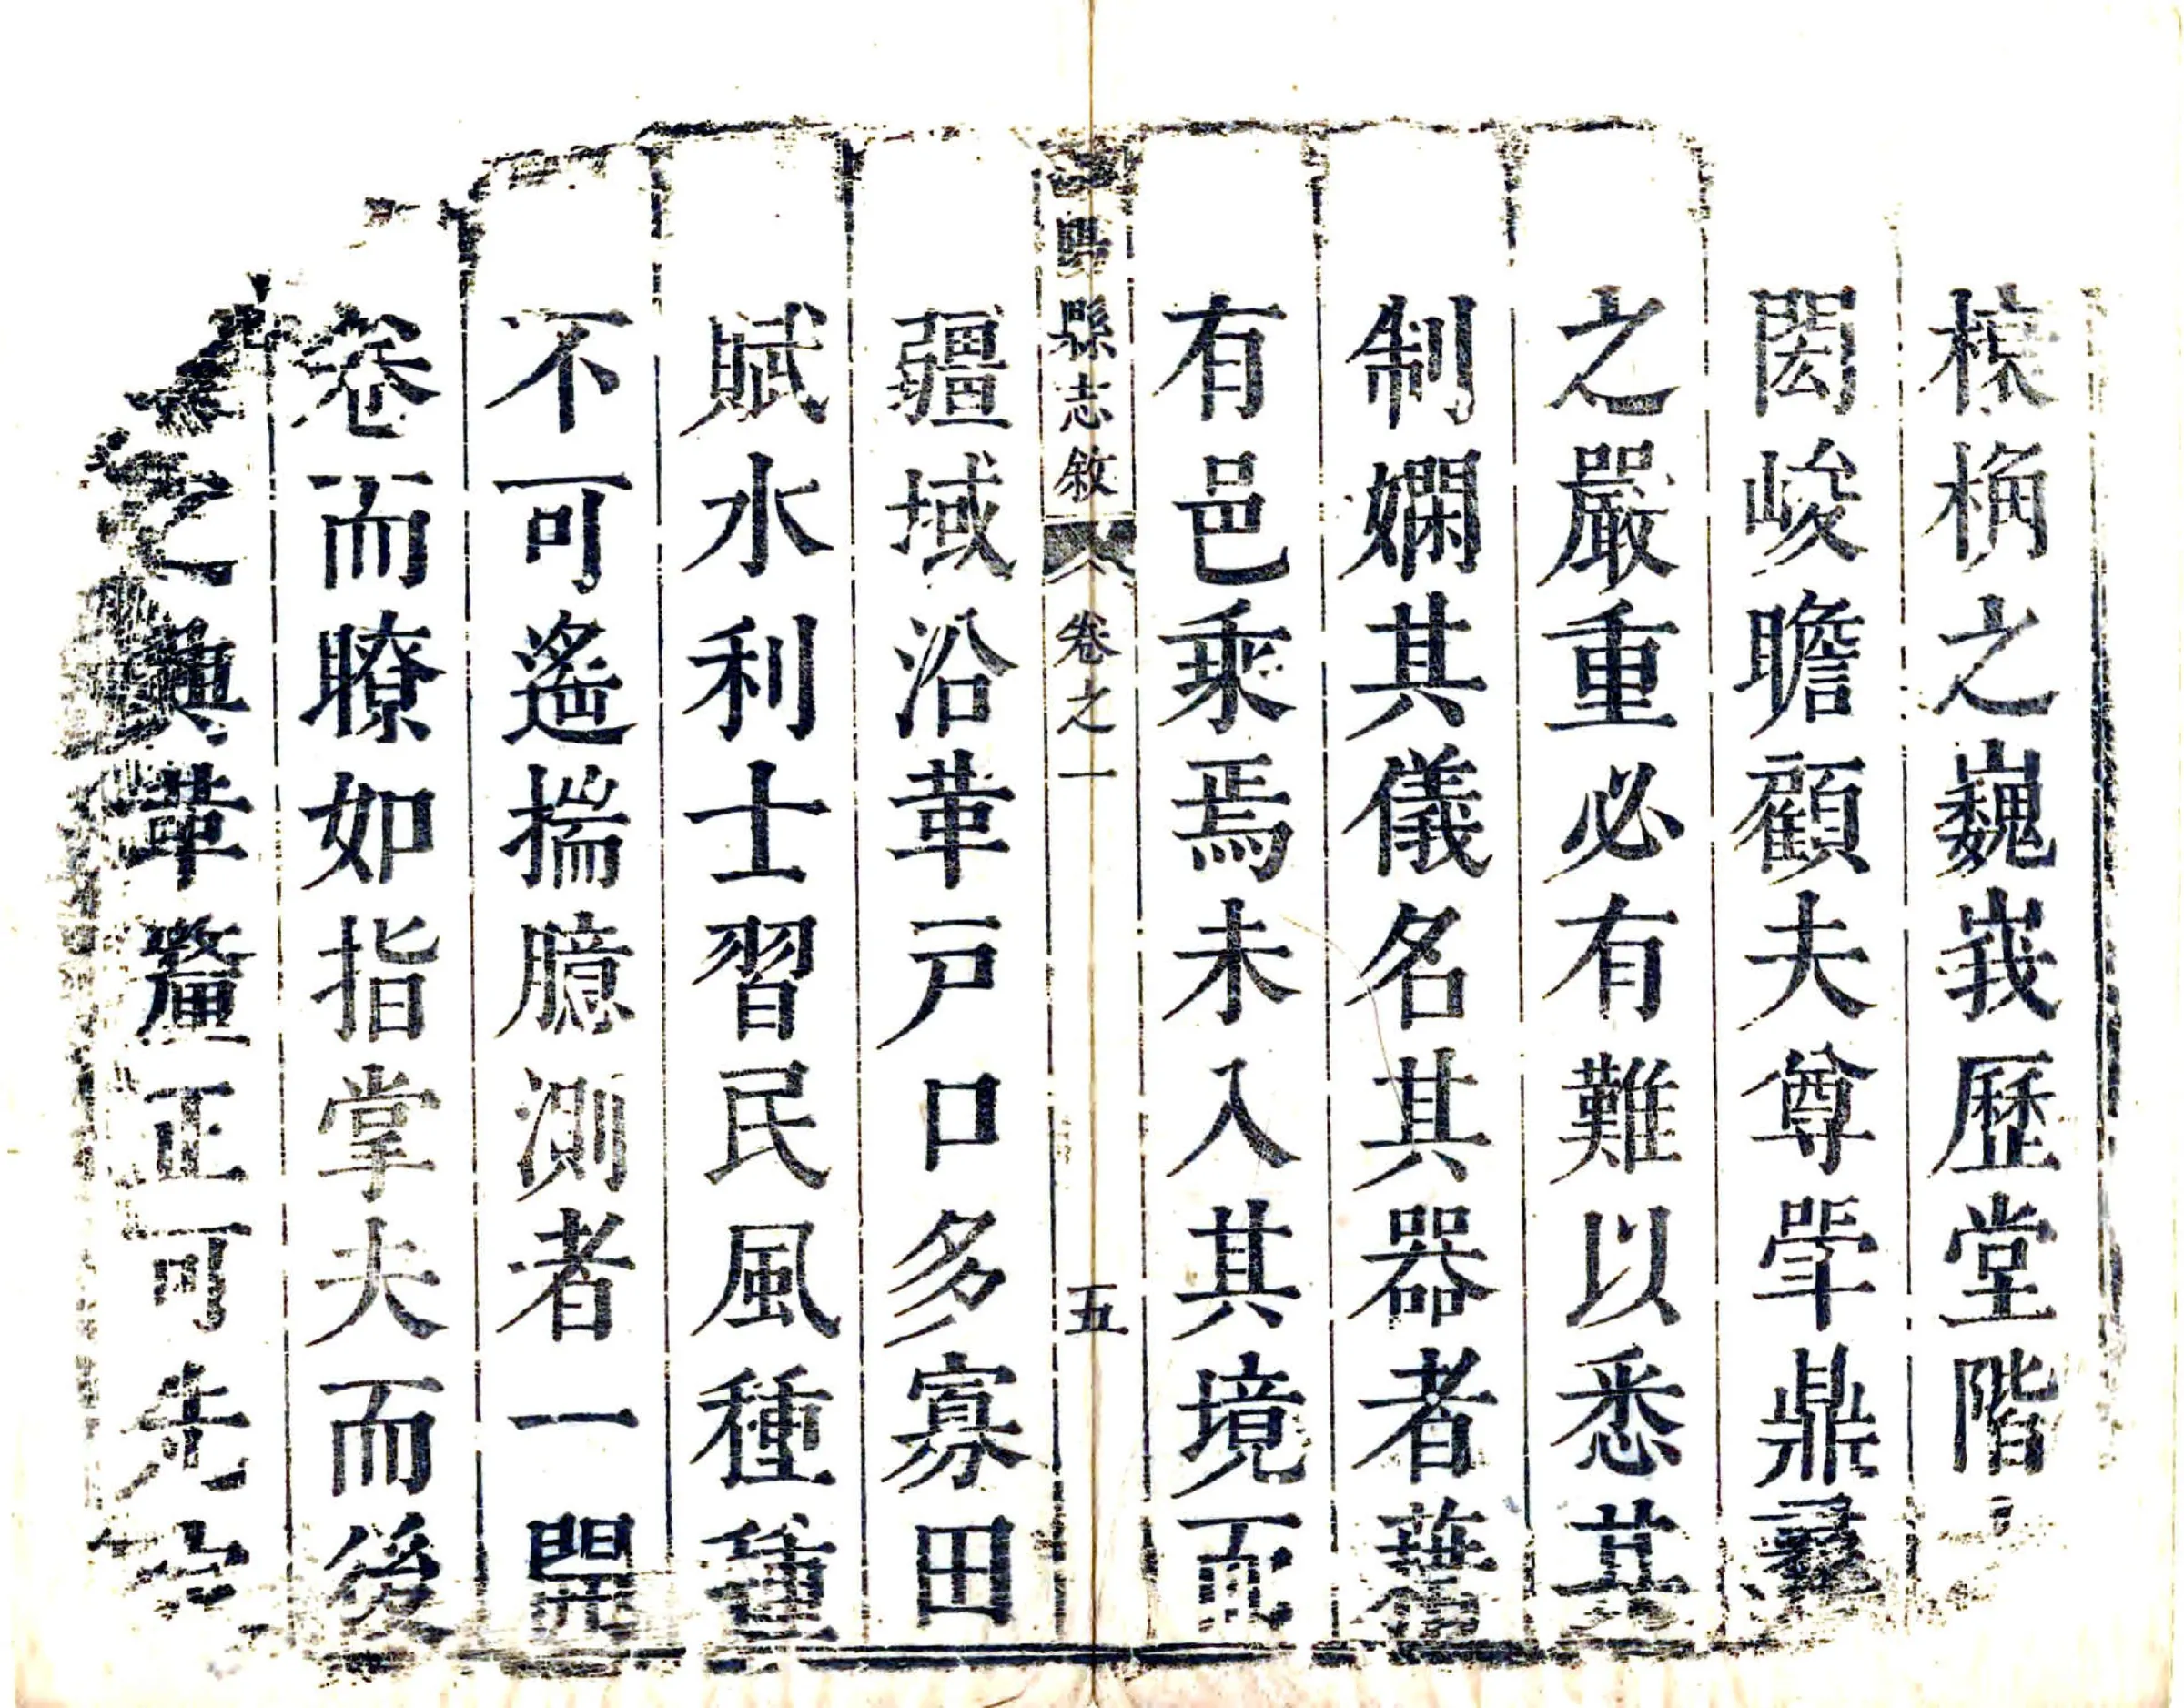 榱桷之巍峩歷堂階之
閎峻瞻顧夫尊斝鼎彝
之嚴重必有難以悉其
制嫻其儀名其器者舊
有邑乘焉未入其境而
縣志敘 卷之一 五
疆域沿革戶口多寡田
賦水利士習民風種種
不可遙揣臆測者一開
卷而瞭如指掌夫而後
之興革釐正可先